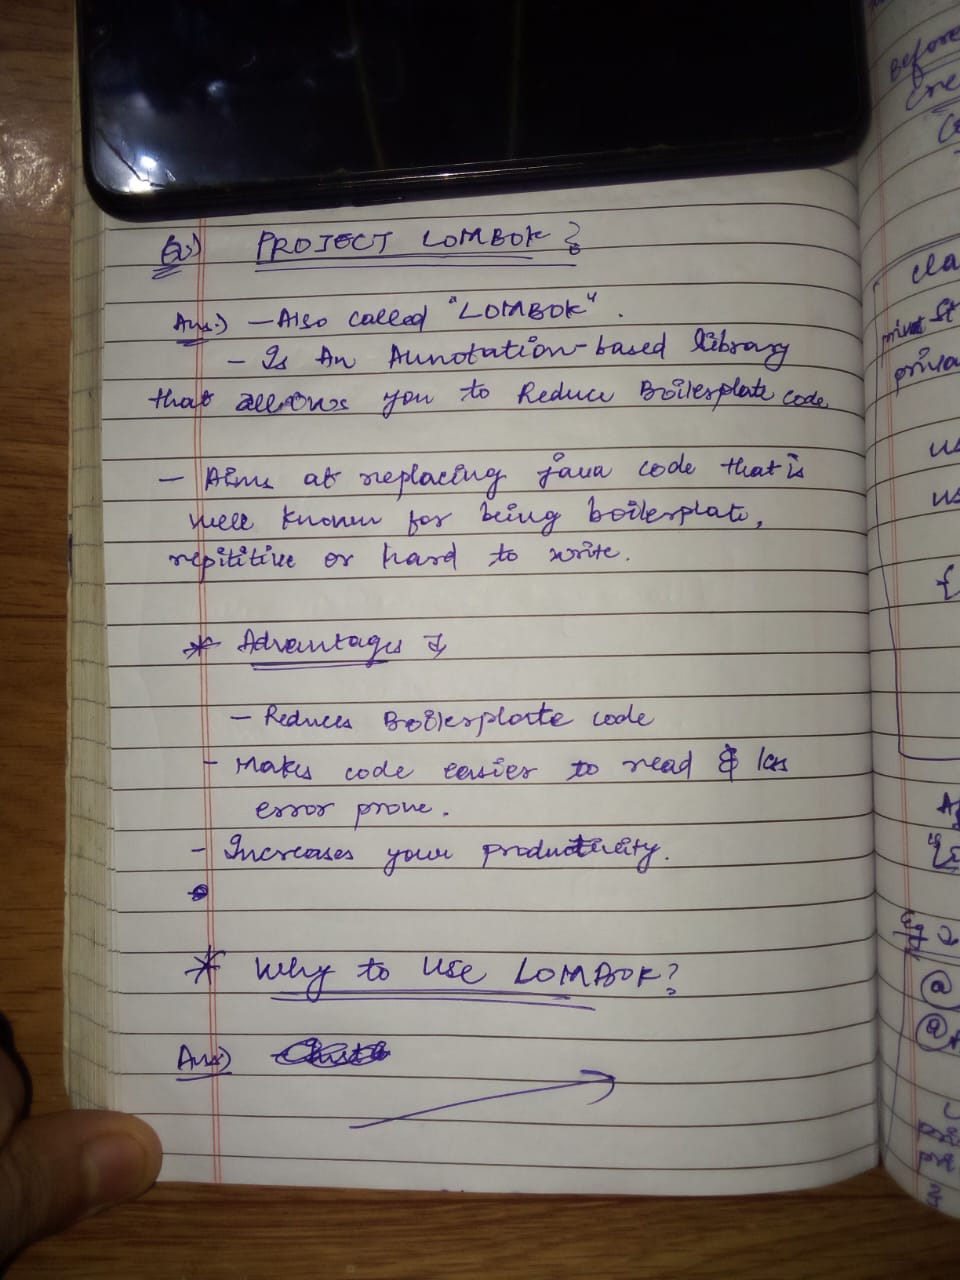 Q) PROJECT LOMBOK ?
Ans.) - Also called "LOMBOK".
- Is An Annotation-based library
that allows you to Reduce Boilerplate code
- Aims at replacing java code that is
well known for being boilerplate,
repititive or hard to write.
* Advantages
- Reduces Boilerplate code
- Makes code easier to read & less
error prone.
- Increases your productivity.
* Why to Use LOMBOK?
Ans)
Before
cla
priva
us
us
{
Eg
@
@